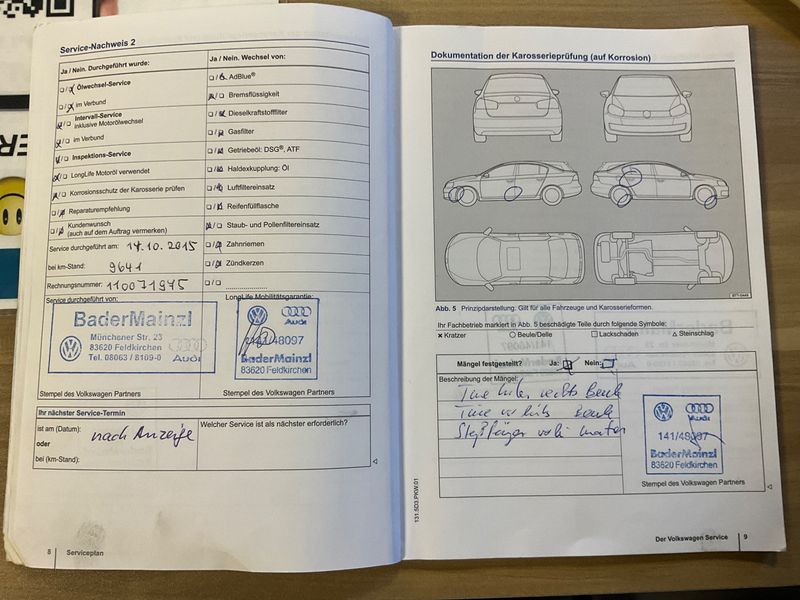 Service-Nachweis 2
Ja / Nein. Durchgeführt wurde:
Ölwechsel-Service
im Verbund
Intervall-Service
inklusive Motorölwechsel
im Verbund
Inspektions-Service
LongLife Motoröl verwendet
Korrosionsschutz der Karosserie prüfen
Reparaturempfehlung
Kundenwunsch
(auch auf dem Auftrag vermerken)
Service durchgeführt am: 14.10.2015
bei km-Stand: 9641
Rechnungsnummer: 110071945
Service durchgeführt von:
BaderMainzl
Münchener Str. 23
83620 Feldkirchen
Tel. 08063 / 8109-0
Audi
Stempel des Volkswagen Partners
Ja / Nein. Wechsel von:
AdBlue®
Bremsflüssigkeit
Dieselkraftstofffilter
Gasfilter
Getriebeöl: DSG®, ATF
Haldexkupplung: Öl
Luftfiltereinsatz
Reifenfüllflasche
Staub- und Pollenfiltereinsatz
Zahnriemen
Zündkerzen
LongLife Mobilitätsgarantie:
Audi
141/48097
BaderMainzl
83620 Feldkirchen
Stempel des Volkswagen Partners
Ihr nächster Service-Termin
ist am (Datum): nach Anzeige
oder
bei (km-Stand):
Welcher Service ist als nächster erforderlich?
8 Serviceplan
Dokumentation der Karosserieprüfung (auf Korrosion)
Abb. 5 Prinzipdarstellung: Gilt für alle Fahrzeuge und Karosserieformen.
Ihr Fachbetrieb markiert in Abb. 5 beschädigte Teile durch folgende Symbole:
× Kratzer ○ Beule/Delle □ Lackschaden △ Steinschlag
Mängel festgestellt? Ja: Nein:
Beschreibung der Mängel:
rechts
Audi
141/48097
BaderMainzl
83620 Feldkirchen
Stempel des Volkswagen Partners
131.5D3.PKW.01
Der Volkswagen Service 9